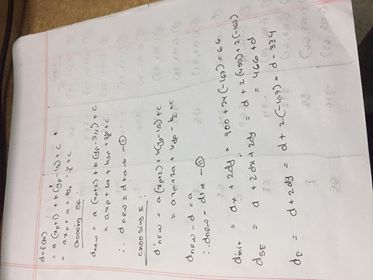 d=f(x)
= a(xp+1) + b(yp-1/2) + c
= axp + a + byp - b/2 + c
Choosing SE:
dnew = a(xp+2) + b(yp-3/2) + c
= axp + 2a + byp
∴ dnew = d+a-b - ①
Choosing E:
d'new = a(xp+2) + b(yp-1/2) + c
= axp + 2a + byp - b/2 + c
dnew - d = a
∴ dnew = d+a - ②
dinit = dx + 2dy = 400 + 2x(-167) = 66
dSE = d + 2dx + 2dy = d + 2(400) + 2(-167)
= 466 + d
dE = d + 2dy = d + 2·(-167) = d - 334